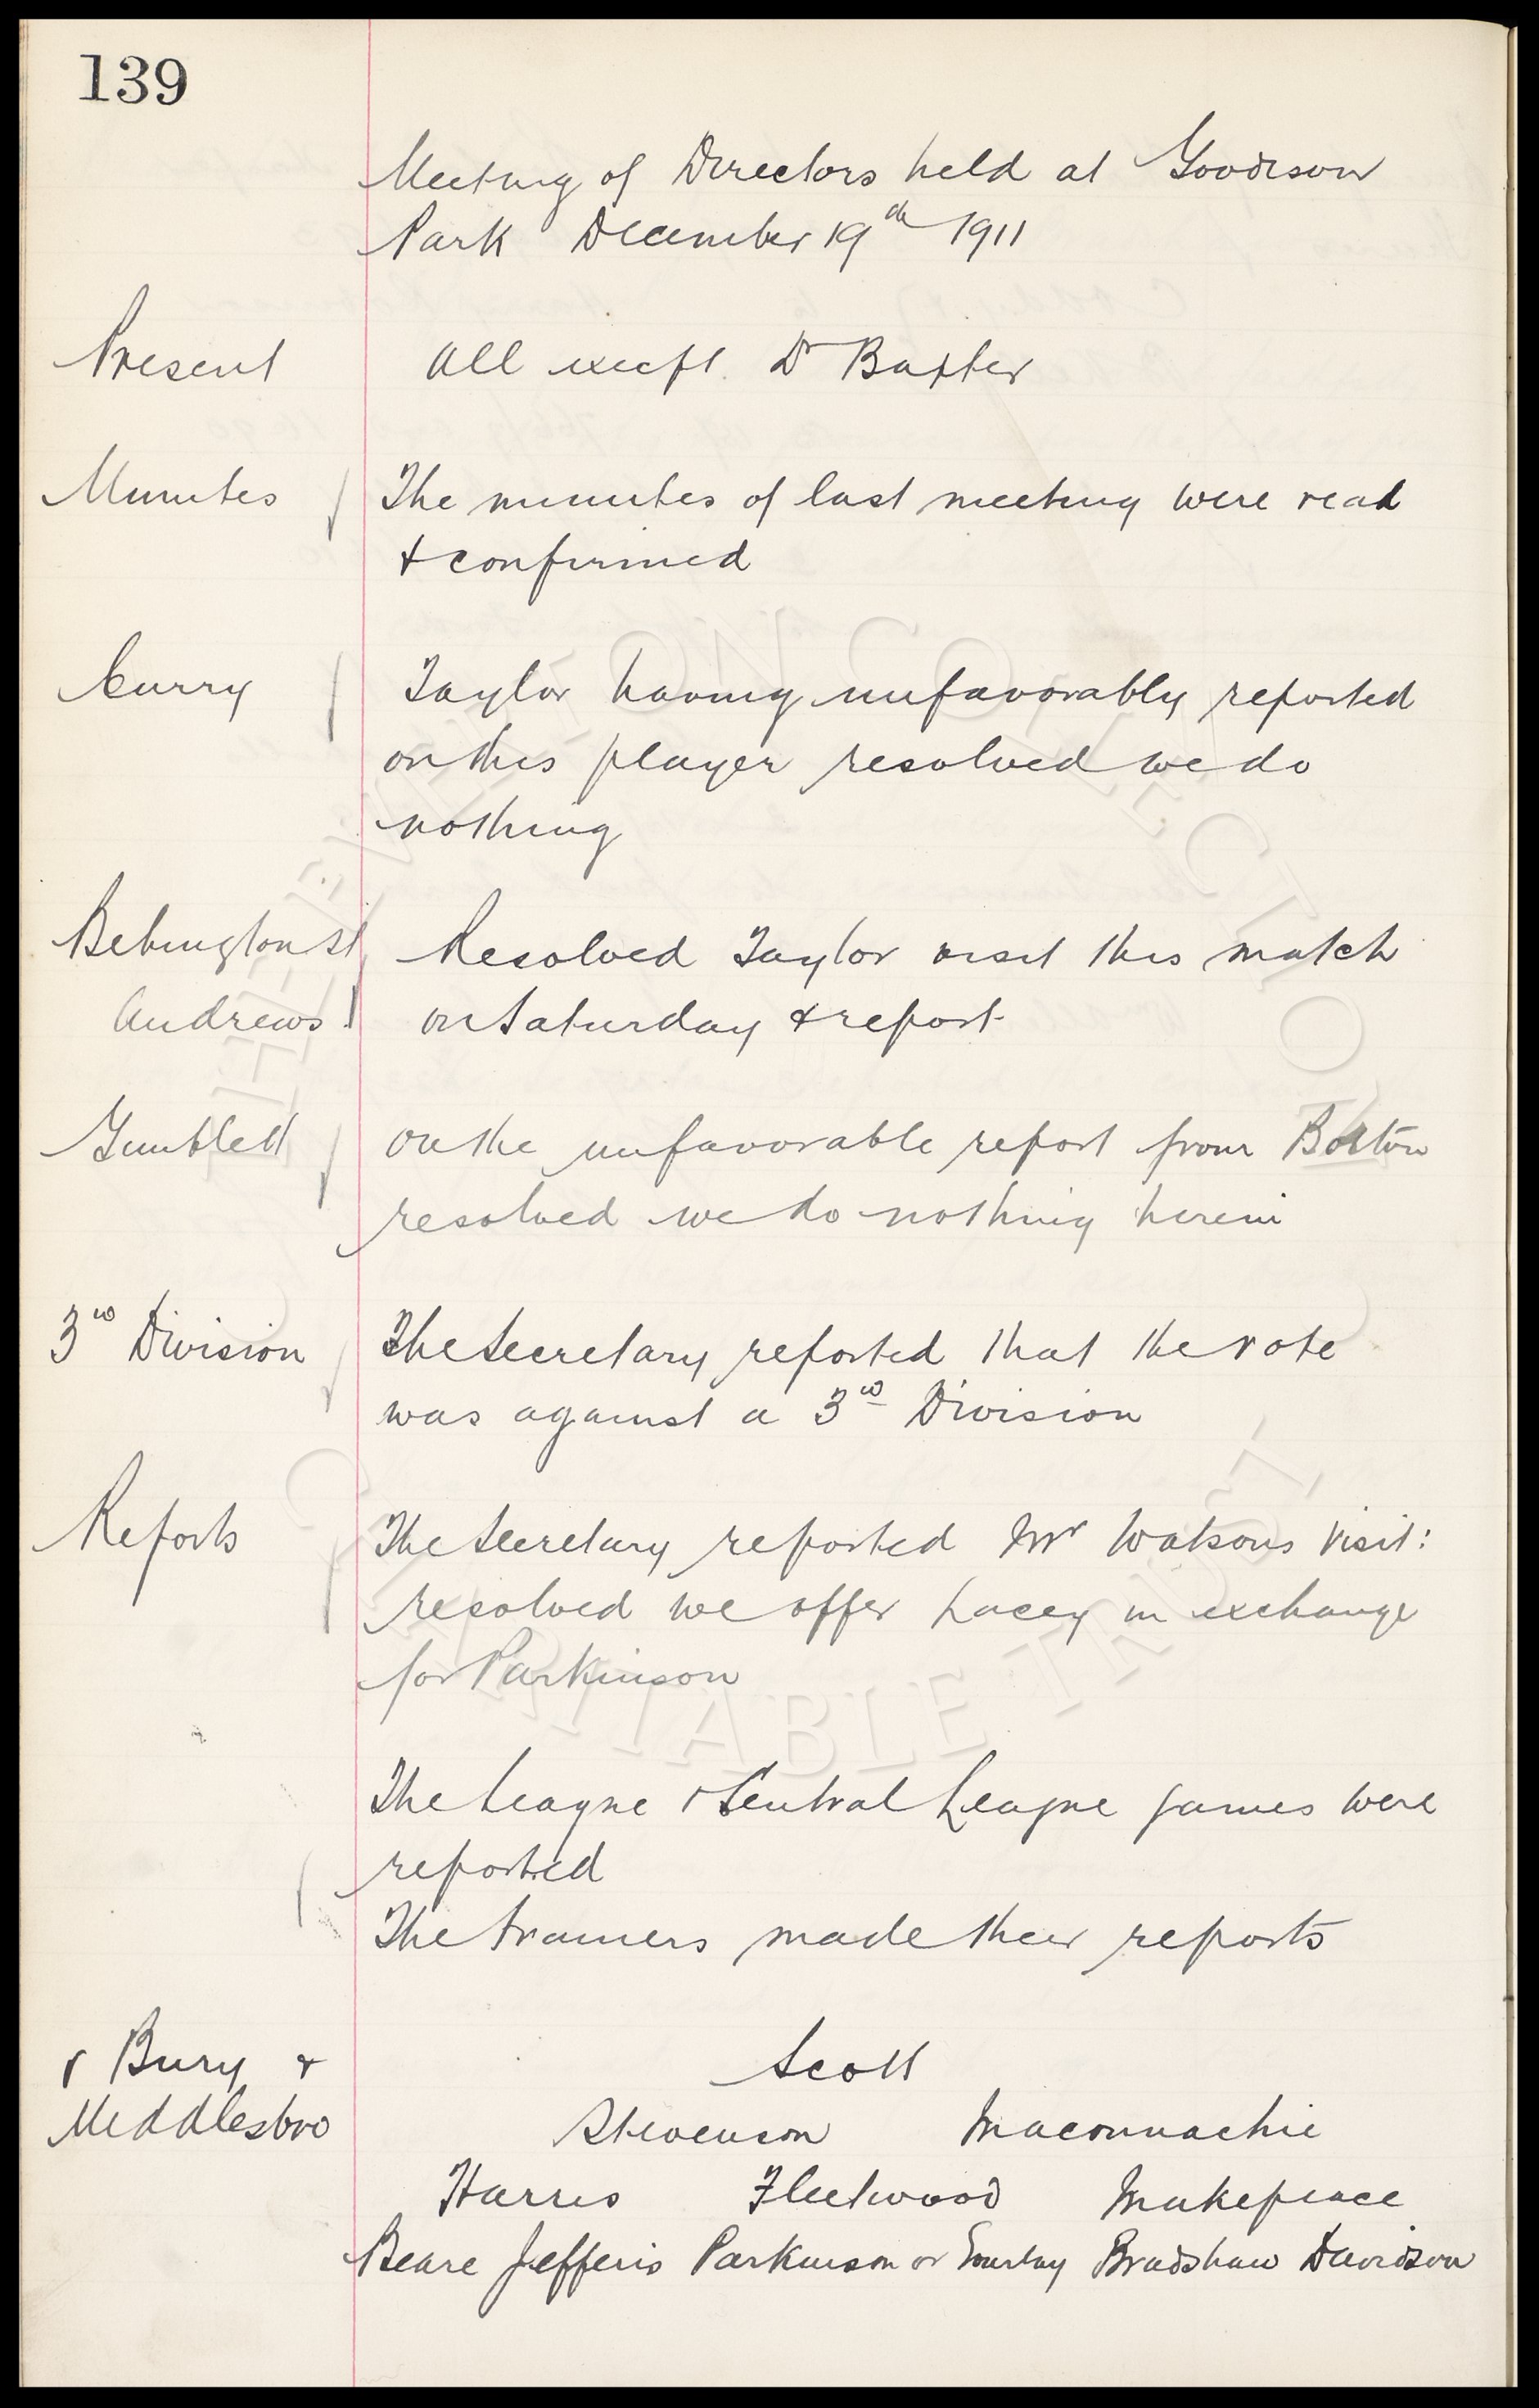 139
Meeting of Directors held at Goodison
Park December 19th 1911
Present All except Dr Baxter
Minutes The minutes of last meeting were read
& confirmed
Curry Taylor having unfavorably reported
on this player resolved we do
nothing
Bebington St Resolved Taylor visit this match
Andrews on Saturday & report
Gumblett on the unfavorable report from Bolton
resolved we do nothing herein
3rd Division The Secretary reported that the vote
was against a 3rd Division
Reports The Secretary reported Mr Watsons visit:
resolved we offer Lacey in exchange
for Parkinson
The League & Central League games were
reported
The trainers made their reports
v Bury & Scott
Middlesbro Stevenson Maconnachie
Harris Fleetwood Makepeace
Beare Jefferis Parkinson or Gourlay Bradshaw Davidson